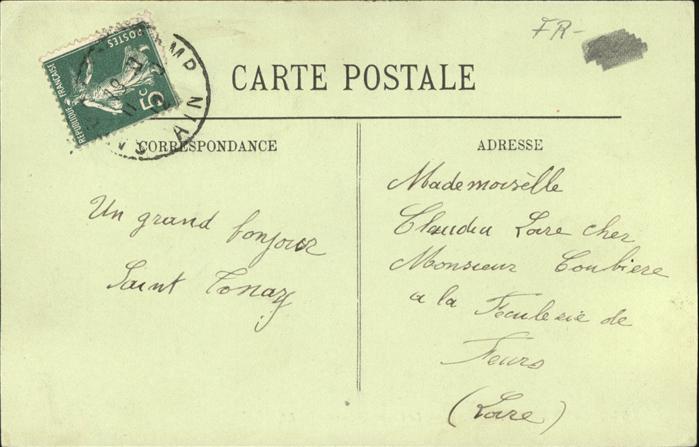 FR-
CARTE POSTALE
REPUBLIQUE FRANÇAISE
POSTES
5c
AIN
CORRESPONDANCE
ADRESSE
Un grand bonjour
Saint
Mademoisèlle
Claudia Loire cher
Monsieur Coubiere
a la Feculerie de
Feurs
(Loire)